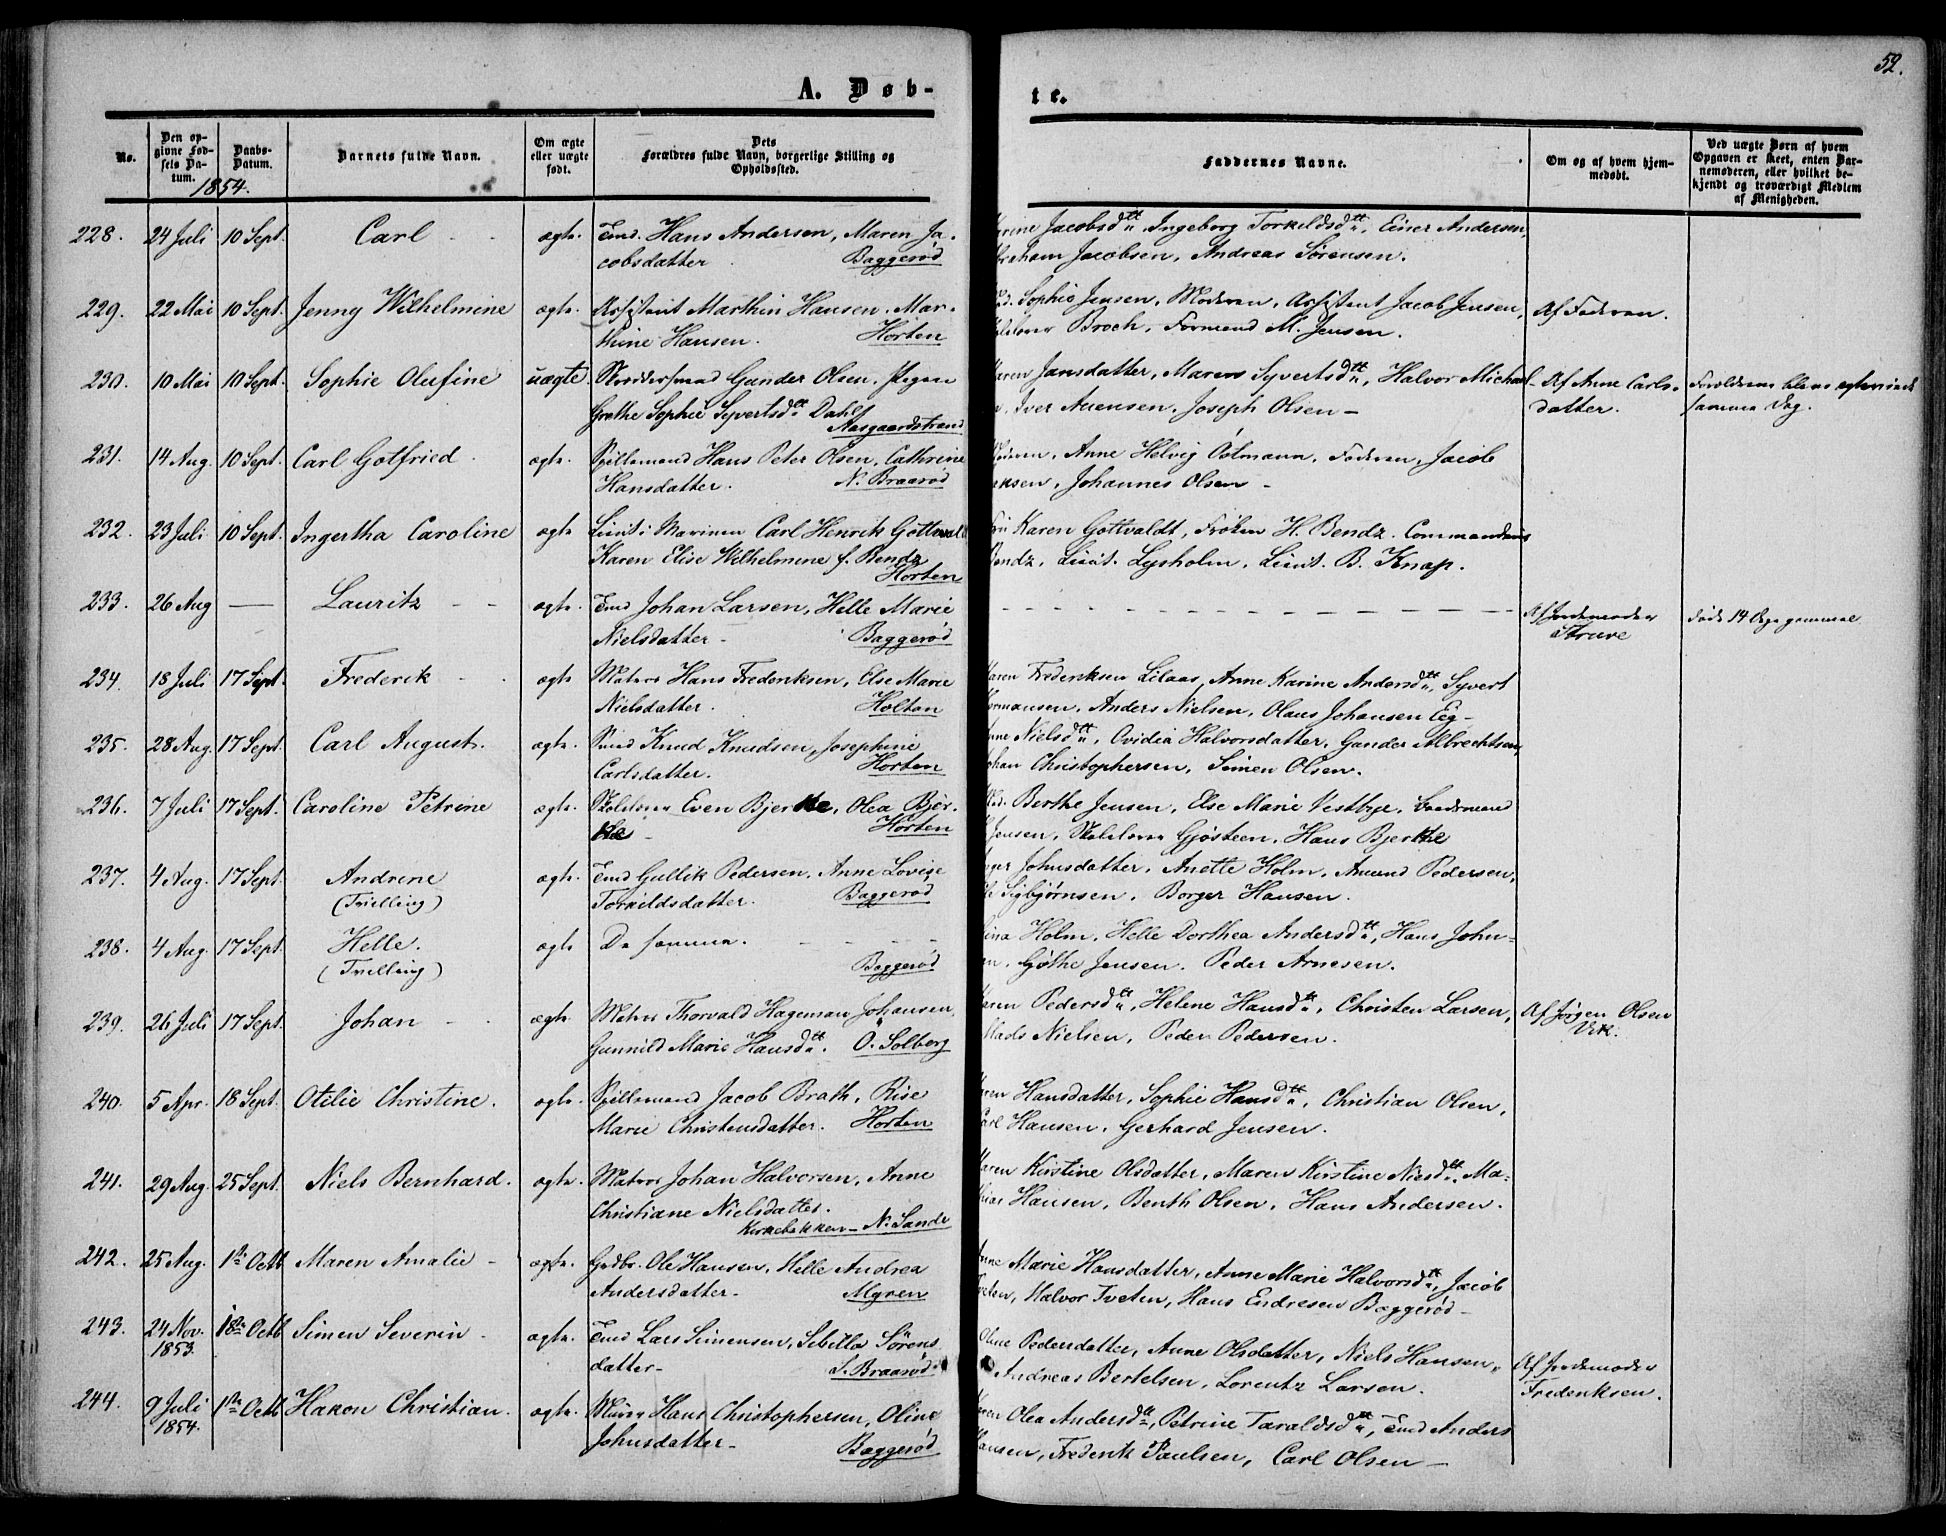 A. Døb-
te.
52.
No.
Den op-
givne Fød-
sels Da-
tum.
Daabs-
Datum.
Barnets fulde Navn.
Om ægte
eller uægte
født.
Dets
Forældres fulde Navn, borgerlige Stilling og
Opholdssted.
Faddernes Navne.
Om og af hvem hjem-
medøbt.
Ved uægte Børn af hvem
Opgaven er skeet, enten Bar-
nemoderen, eller hvilket be-
kjendt og troværdigt Medlem
af Menigheden.
1854.
228. 24 Juli 10 Sept. Carl ægte. Hans Andersen, Maren Ja-
cobsdatter Baggerød
Jacobsdtt Ingeborg Torkildsdtt, Einer Andersen,
Jacobsen, Andreas Sørensen.
229. 22 Mai 10 Sept. Jenny Wilhelmine ægte. Assistent Marthin Hansen, Mar-
thine Hansen. Horten
Sophie Jensen, Moderen, Assistent Jacob Jensen,
Broch, Formand M. Jensen.
Af Faderen.
230. 10 Mai 10 Sept. Sophie Olufine uægte Gunder Olsen, Pigen
Grethe Sophie Syvertsdtt Dahl
Aasgaardstrand
Jansdatter, Maren Syvertsdtt, Halvor
Iver Auensen, Joseph Olsen
Af Anne Carls-
datter.
Forældrene bleve
samme Dag.
231. 14 Aug. 10 Sept. Carl Gotfried ægte. Spillemand Hans Peter Olsen, Cathrine
Hansdatter. N. Braarød
Anne Helvig Faderen, Jacob
Johannes Olsen
232. 23 Juli 10 Sept. Ingertha Caroline ægte Lieut. i Marinen Carl Henrik
Karen Elise Wilhelmine f. Bendz
Horten
Karen Gottvaldt, Frøken H. Bendz.
Bendz, Lieut. Lysholm, Lieut. B. Knap.
233. 26 Aug — Lauritz ægte. Johan Larsen, Helle Marie
Nielsdatter Baggerød
Af Jordemoder
Struve
Døde 14 Dage gammel
234. 18 Juli 17 Sept. Frederik ægte Matros Hans Frederiksen, Else Marie
Nielsdatter. Holtan
Frederiksen Anne Karine Andersdtt, Syvert
Anders Nielsen, Olaus Johansen Eeg
235. 28 Aug. 17 Sept. Carl August. ægte. Knud Knudsen, Josephine
Carlsdatter. Horten
Nielsdtt, Ovidia Halvorsdatter, Gunder Albrechtsen,
Christophersen, Simen Olsen.
236. 7 Juli 17 Sept. Caroline Petrine ægte. Skolelærer Even Bjerke, Olea Bjer-
ke Horten
Berthe Jensen, Else Marie Vestbye,
Jensen, Skolelærer Gjøsteen, Hans Bjerke
237. 4 Aug. 17 Sept. Andrine
(Tvilling)
ægte. Gullik Pedersen, Anne Lovise
Torkildsdatter. Baggerød
Johnsdatter, Anette Holm, Amund Pedersen,
Sigbjørnsen, Borger Hansen.
238. 4 Aug. 17 Sept. Helle.
(Tvilling)
ægte De samme.
Baggerød
Holm, Helle Dorthea Andersdtt, Hans John-
Gøthe Jensen. Peder Arnesen.
239. 26 Juli 17 Sept. Johan ægte. Matros Thorvald Hageman Johansen,
Gunnild Marie Hansdtt. Ø. Solberg
Pedersdtt, Helene Hansdtt, Christen Larsen,
Nielsen, Peder Pedersen.
Af Jørgen Olsen
240. 5 Apr. 18 Sept. Otilie Christine. ægte. Spillemand Jacob Brath, Rise
Marie Christensdatter. Horten
Hansdatter, Sophie Hansdtt, Christian Olsen,
Carl Hansen, Gerhard Jensen.
241. 29 Aug. 25 Sept. Niels Bernhard. ægte. Matros Johan Halvorsen, Anne
Christiane Nielsdatter.
Kirkebakken – N. Sande
Maren Kirstine Olsdatter, Maren Kirstine Ma-
Hansen, Benth Olsen, Hans Andersen.
242. 25 Aug. 1ste Octb Maren Amalie ægte. Gdbr. Ole Hansen, Helle Andrea
Andersdatter. Myren
Anne Marie Hansdatter, Anne Marie Halvorsdtt, Jacob
Tveten, Halvor Tveten, Hans Endresen Baggerød
243. 24 Nov.
1853.
1ste Octb Simen Severin ægte. Lars Simensen, Sibilla Sørens-
datter S. Braarød
Oline Pedersdatter, Anne Olsdatter, Niels Hansen,
Andreas Bertelsen, Lorentz Larsen.
Af Jordemoder
Frederiksen.
244. 9 Juli
1854.
1ste Octb Hakon Christian. ægte. Hans Christophersen, Oline
Johnsdatter Baggerød
Olea Andersdtt, Petrine Taraldsdtt, Anders
Hansen, Frederik Paulsen, Carl Olsen